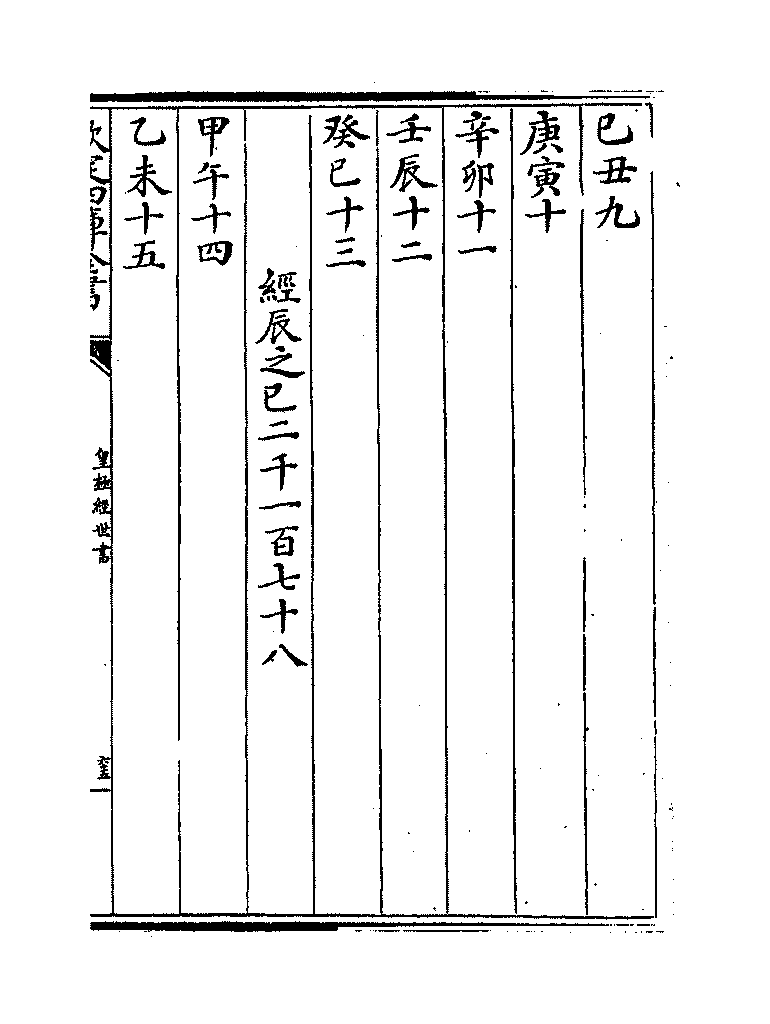 己丑九
庚寅十
辛卯十一
壬辰十二
癸巳十三
經辰之巳二千一百七十八
甲午十四
乙未十五
欽定四庫全書
皇極經世書